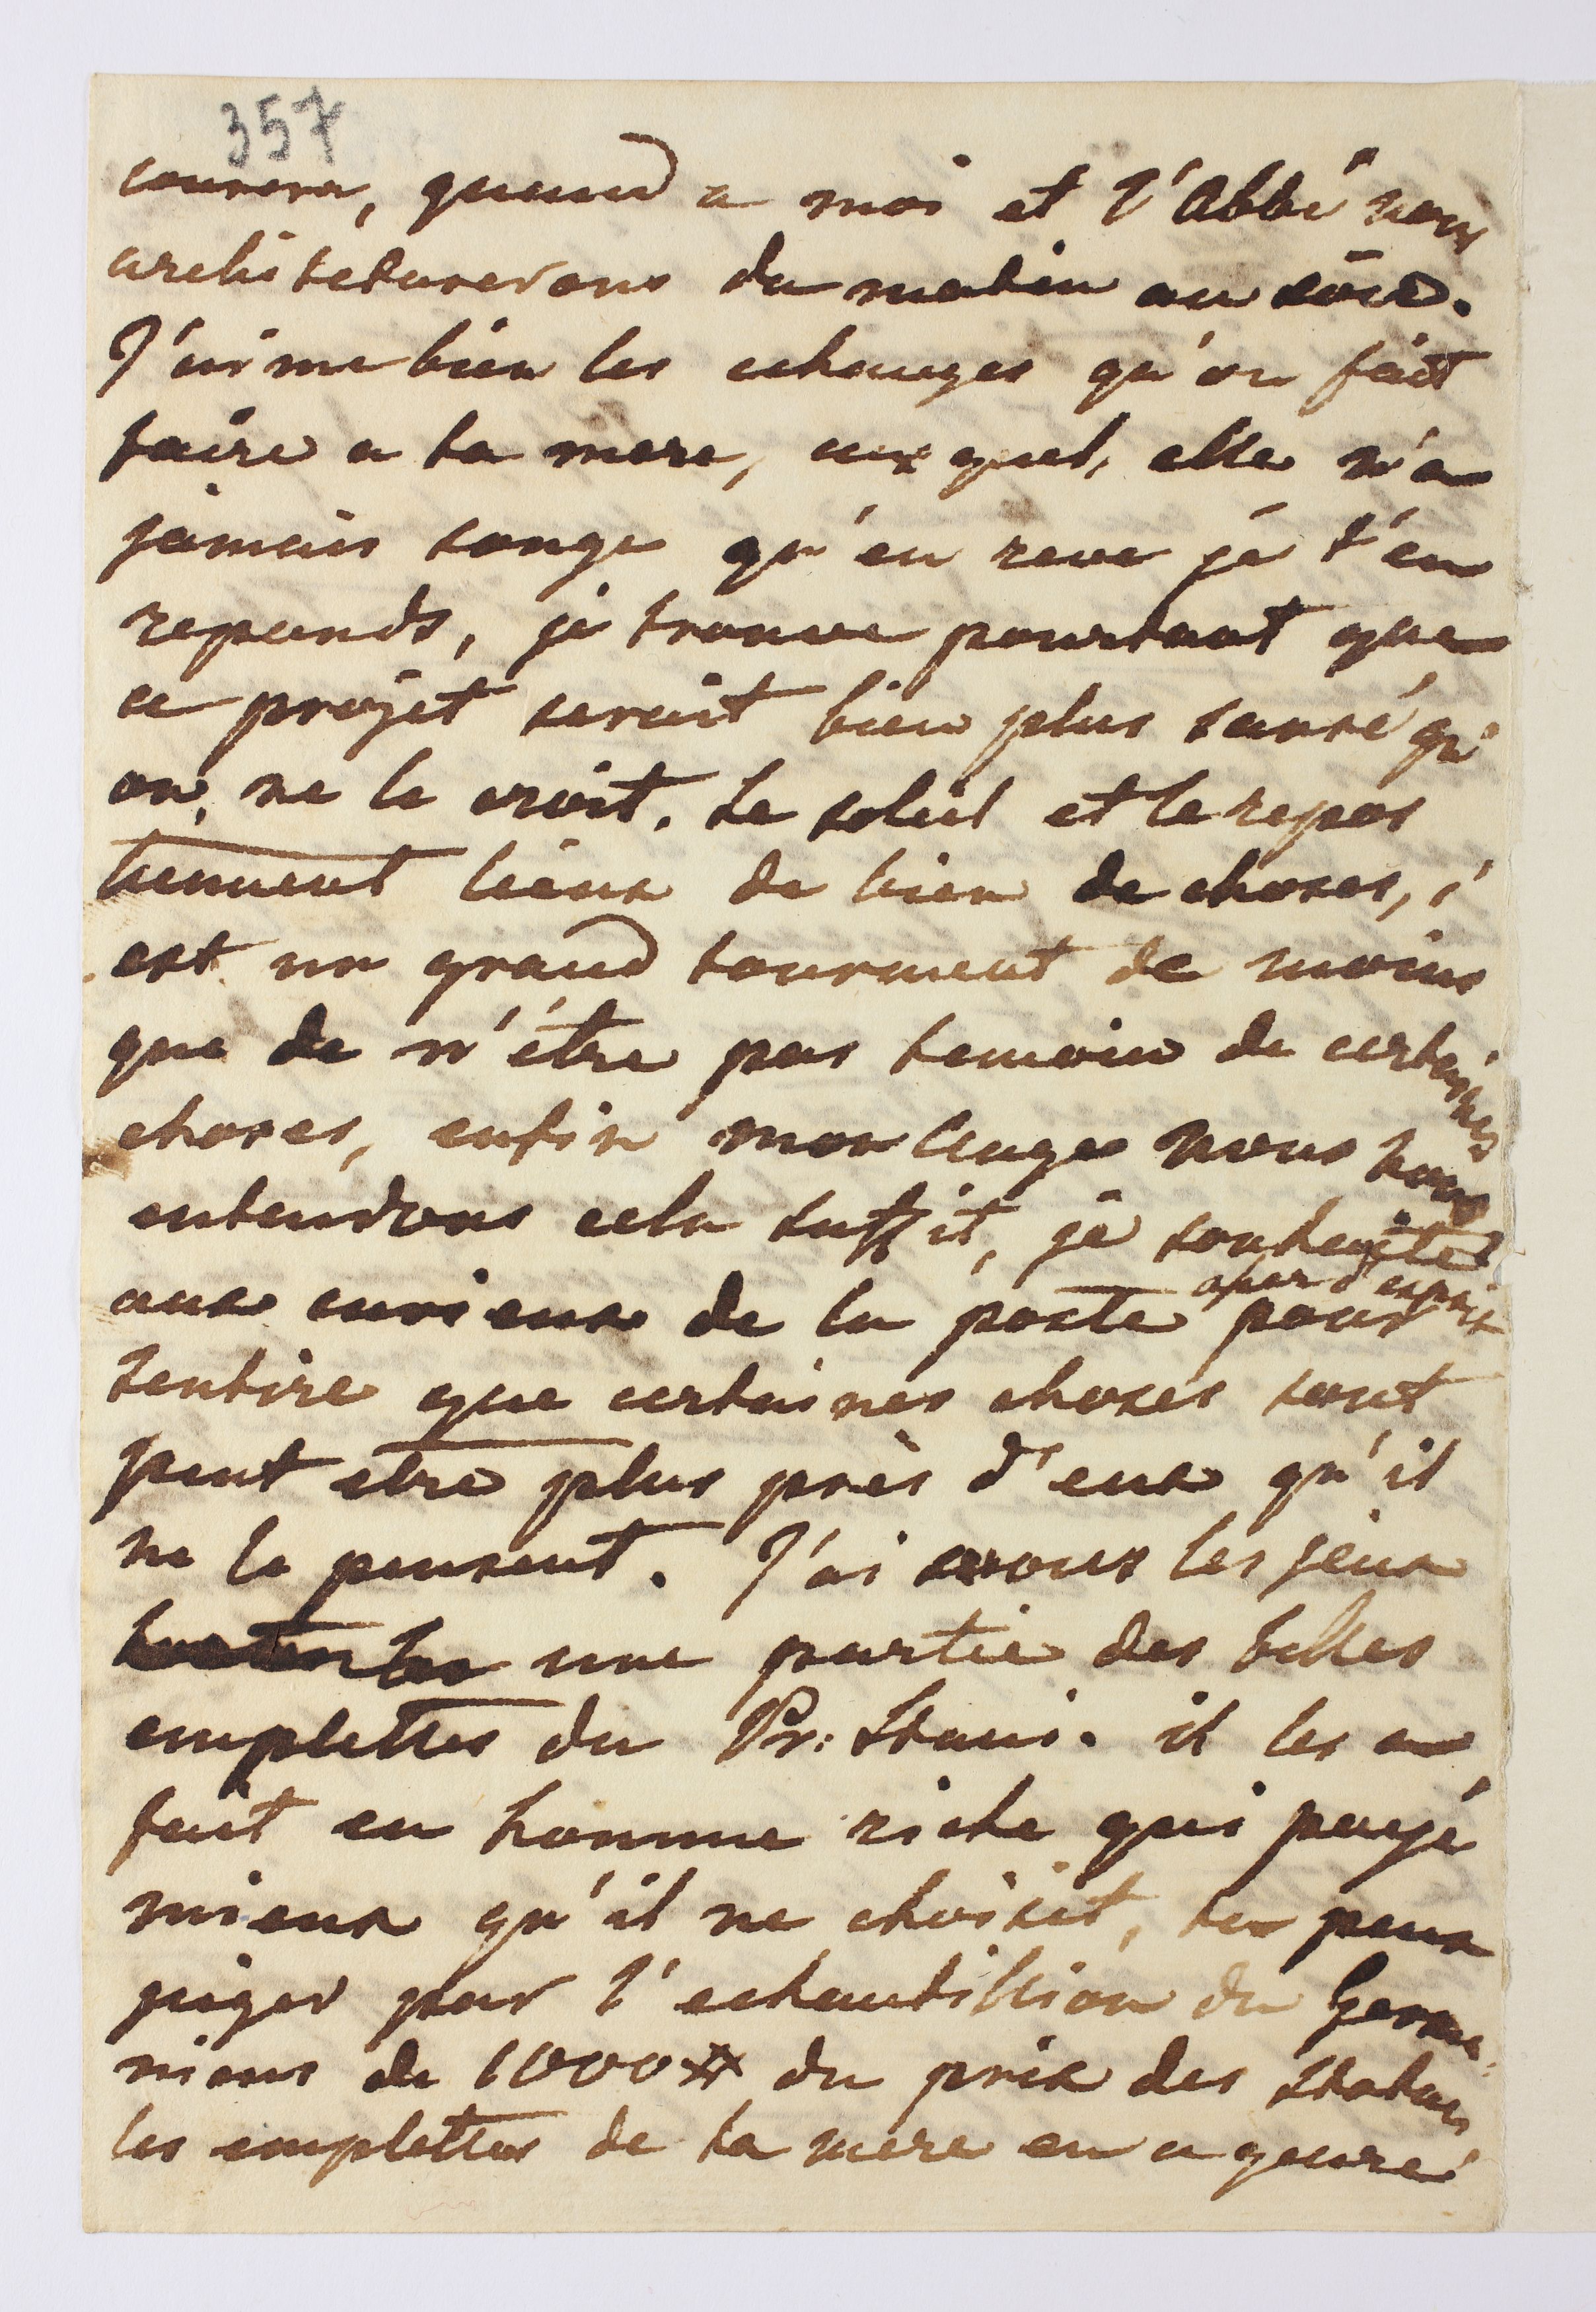 357
courera, quand a moi et l'Abbé nous
architeturerons du matin au soir.
J'aime bien les echanges qu'on fait
faire a ta mere, auxquels, elle n'a
jamais songe qu'en reve je t'en
reponds, je trouve pourtant que
ce projet serait bien plus sensé qu'
on ne le croit. Le soleil et le repos
tiennent lieux de bien de choses, c'
est un grand tourment de moins
que de n'être pas temoin de certaines
choses, enfin mon Ange nous nous
entendons cela suffit, je souhaite
assez d'esprit
aux curieux de la poste pour
sentire que certaines choses sont
peut etre plus près d'eux qu'il
ne le pensent. J'ai sous les jeux
une partie des belles
emplettes du Pr: Stanis. il les a
fait en homme riche qui paye
mieux qu'il ne choisit, tu peux
juger par l'echantillion du Germa-
nicus de 1000# du prix des statues
les emplettes de ta mere en a